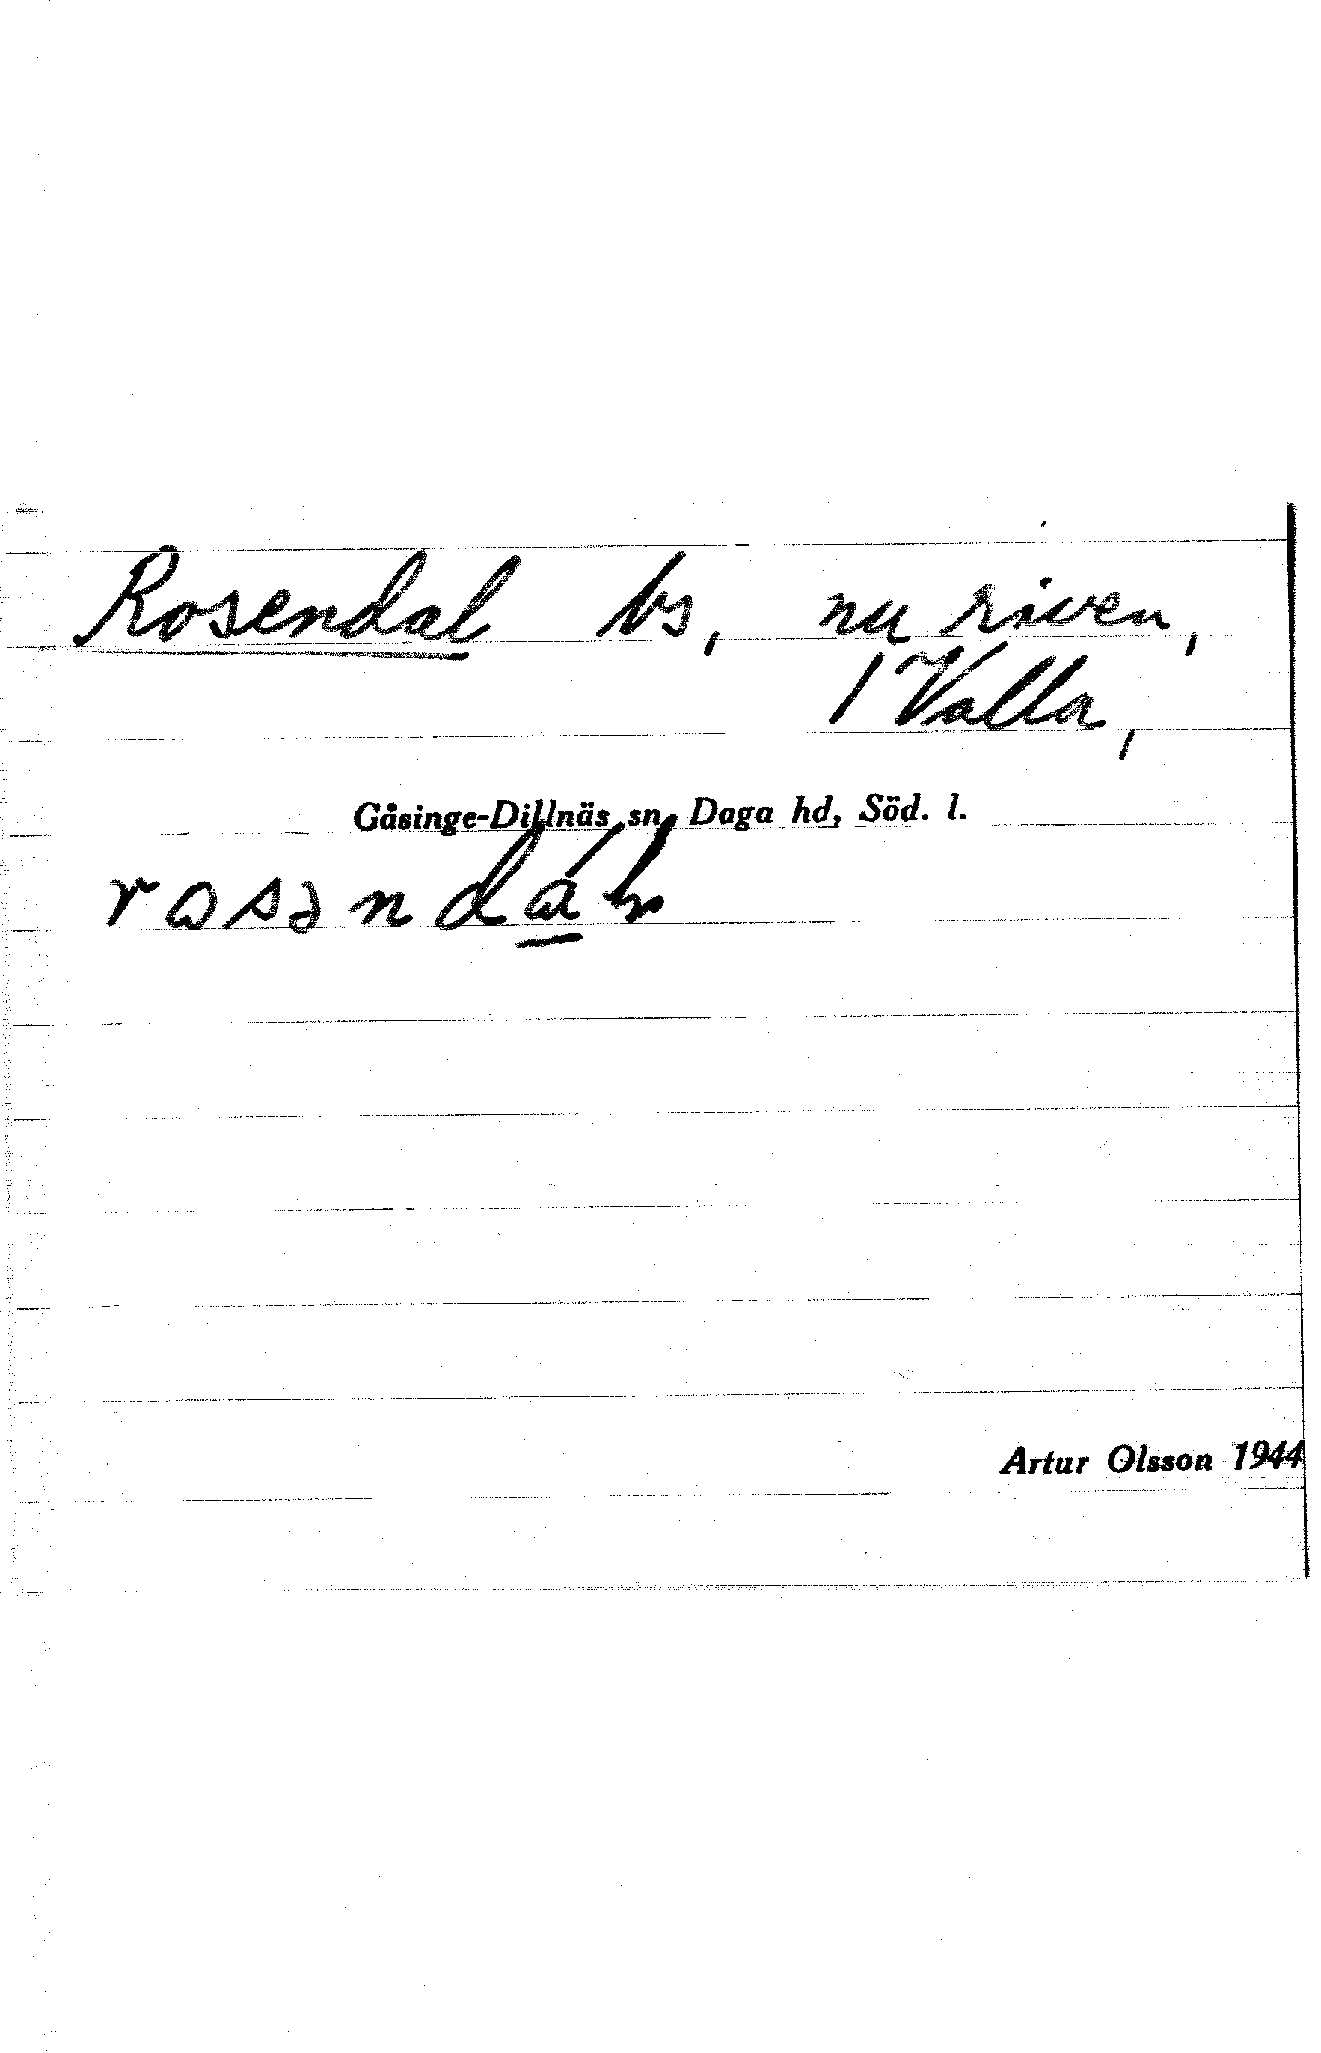 Rosendal bs, nu riven,
1 Valla,
Gåsinge-Dillnäs sn, Daga hd, Söd. l.
Artur Olsson 1944